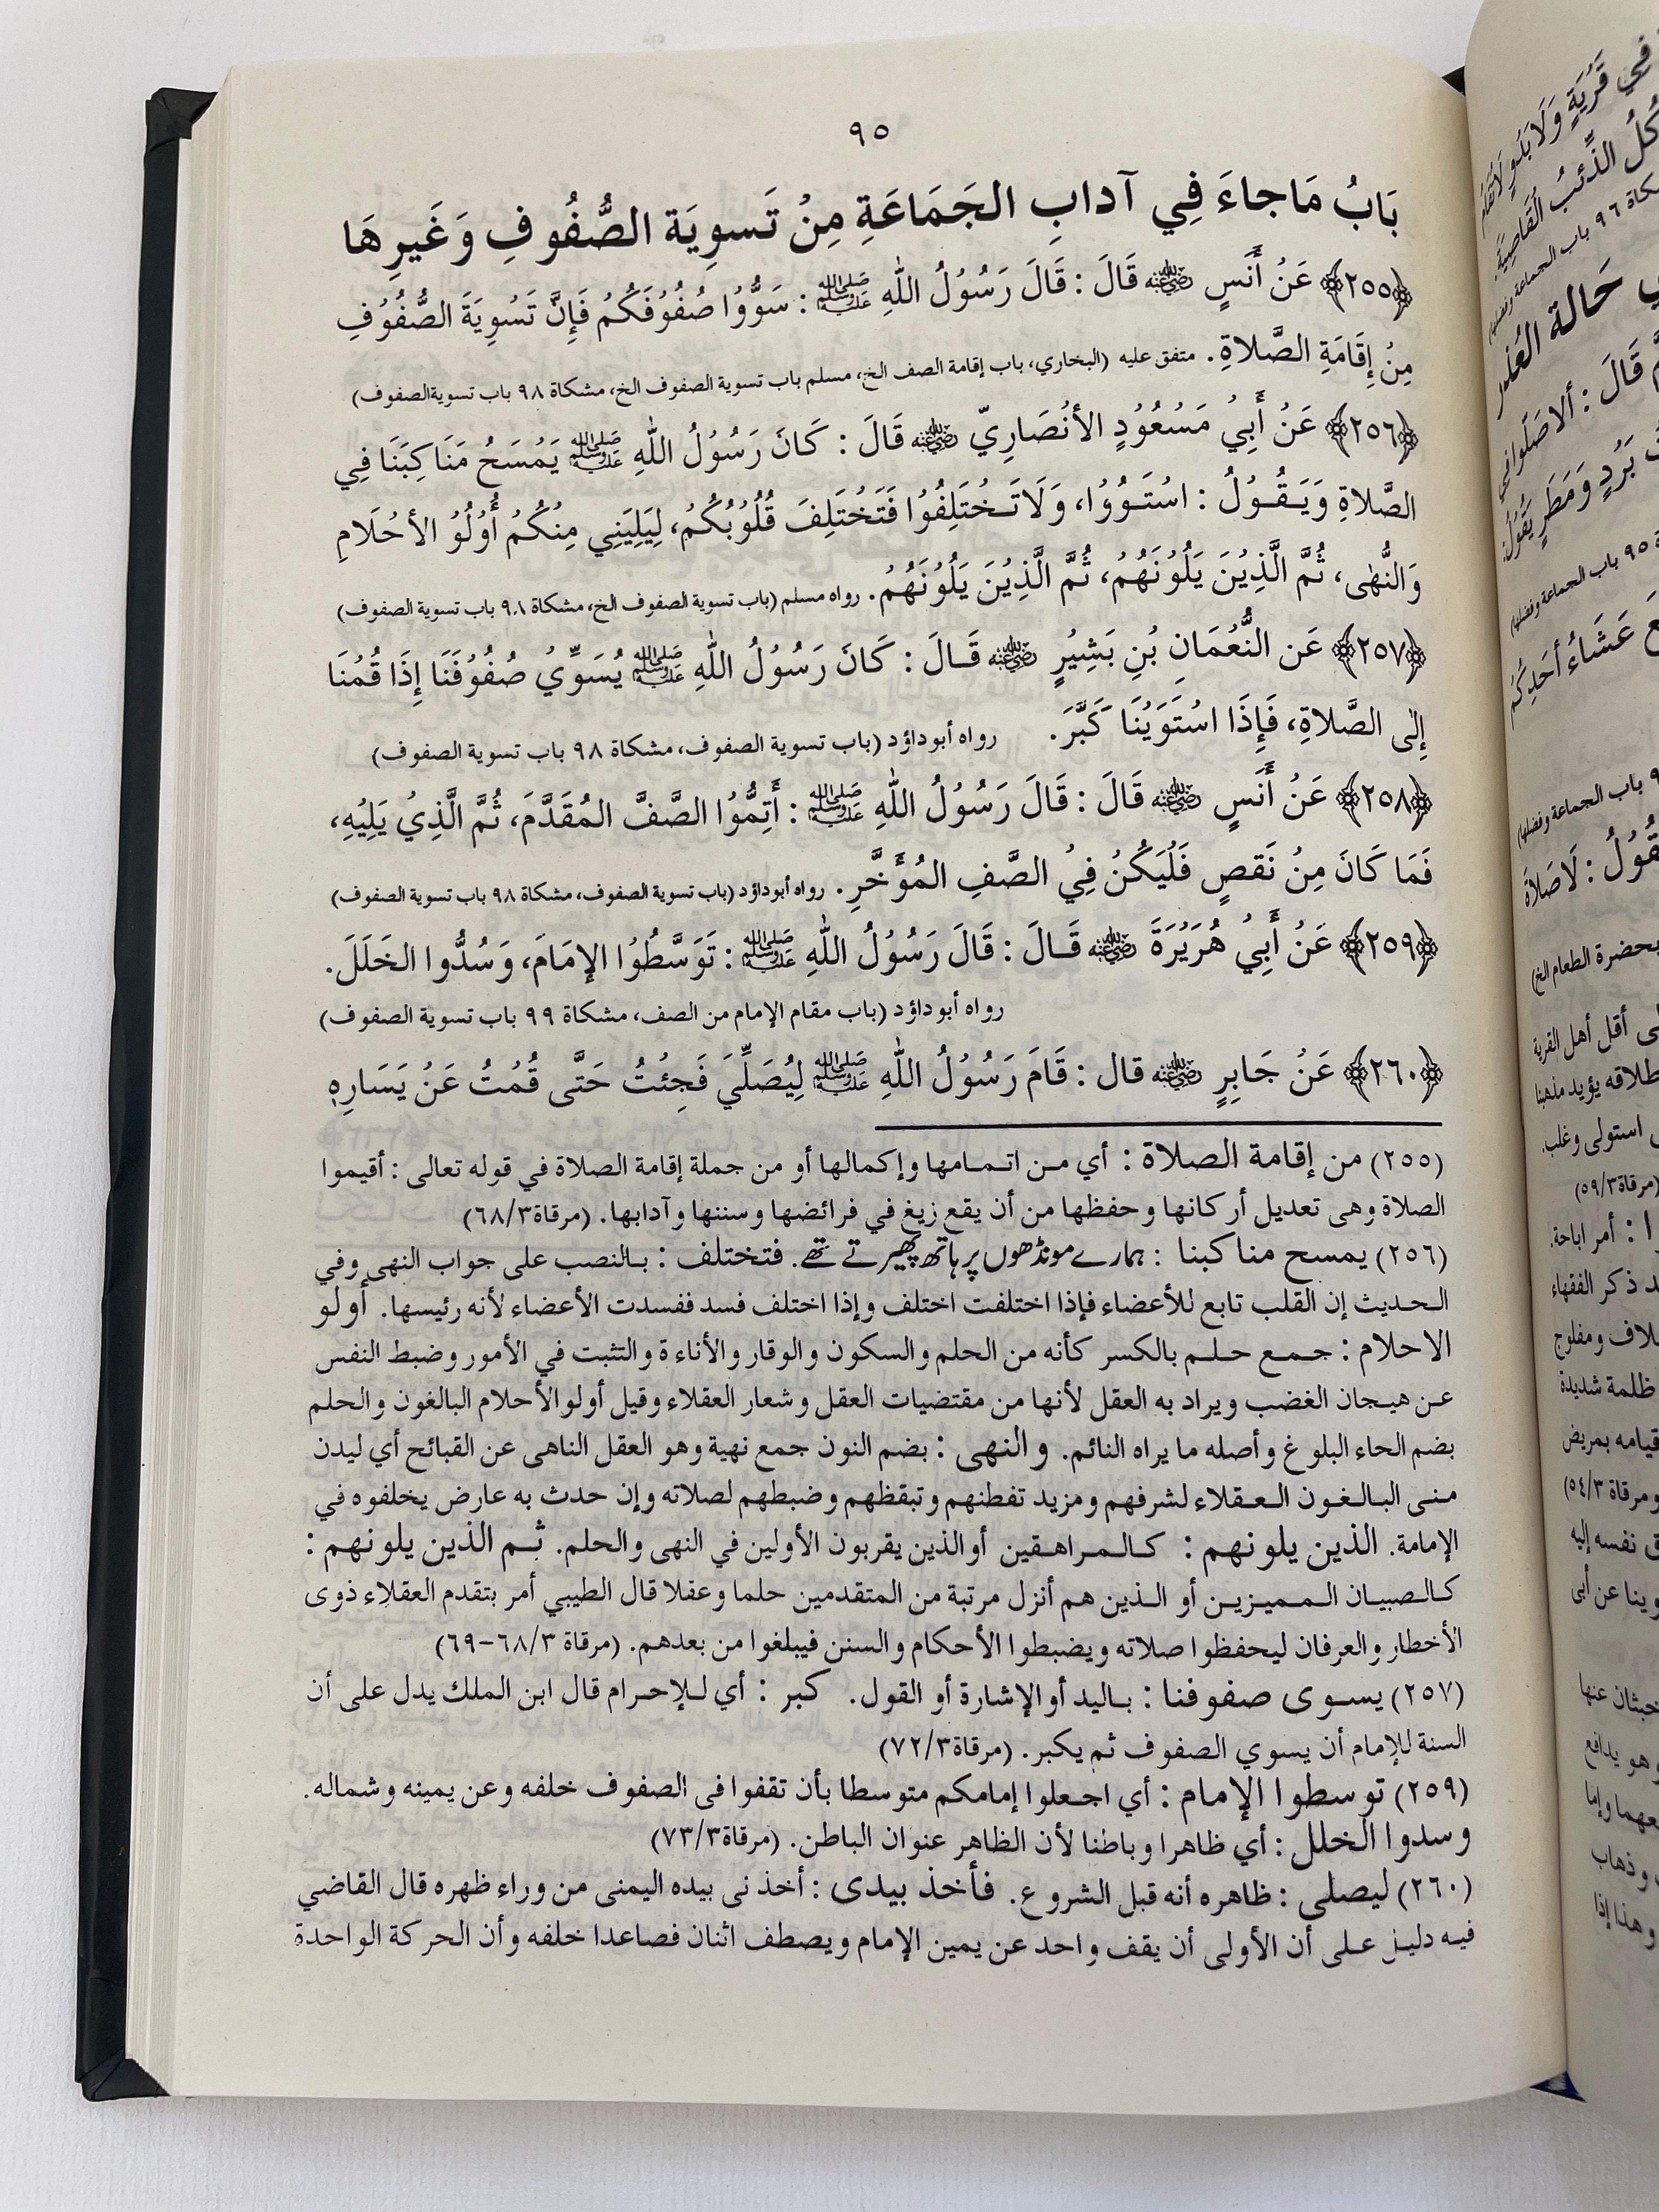 ٩٥
بَابُ مَاجاءَ فِي آدابِ الجَمَاعَةِ مِنْ تَسوِيَة الصُّفُوفِ وَغَيرِهَا
﴿٢٥٥﴾ عَنْ أَنَسٍ رضي الله عنه قَالَ : قَالَ رَسُوْلُ اللهِ ﷺ : سَوُّوْا صُفُوْفَكُمْ فَإِنَّ تَسْوِيَةَ الصُّفُوْفِ
مِنْ إِقَامَةِ الصَّلاةِ. متفق عليه (البخاري، باب إقامة الصف الخ، مسلم باب تسوية الصفوف الخ، مشكاة ٩٨ باب تسويةالصفوف)
﴿٢٥٦﴾ عَنْ أَبِيْ مَسْعُوْدٍ الأنْصَارِيّ رضي الله عنه قَالَ : كَانَ رَسُوْلُ اللهِ ﷺ يَمْسَحُ مَنَاكِبَنَا فِي
الصَّلاةِ وَيَقُوْلُ : اسْتَوُوْا، وَلَاتَخْتَلِفُوْا فَتَخْتَلِفَ قُلُوْبُكُمْ، لِيَلِيَنِي مِنْكُمْ أُوْلُوْ الأحْلَامِ
وَالنُّهٰى، ثُمَّ الَّذِيْنَ يَلُوْنَهُمْ، ثُمَّ الَّذِيْنَ يَلُوْنَهُمْ. رواه مسلم (باب تسوية الصفوف الخ، مشكاة ٩٨ باب تسوية الصفوف)
﴿٢٥٧﴾ عَن النُّعْمَانِ بْنِ بَشِيْرٍ رضي الله عنه قَالَ : كَانَ رَسُوْلُ اللهِ ﷺ يُسَوِّيْ صُفُوْفَنَا إِذَا قُمْنَا
إِلٰى الصَّلاةِ، فَإِذَا اسْتَوَيْنَا كَبَّرَ. رواه أبوداؤد (باب تسوية الصفوف، مشكاة ٩٨ باب تسوية الصفوف)
﴿٢٥٨﴾ عَنْ أَنَسٍ رضي الله عنه قَالَ : قَالَ رَسُوْلُ اللهِ ﷺ : أَتِمُّوْا الصَّفَّ المُقَدَّمَ، ثُمَّ الَّذِيْ يَلِيْهِ،
فَمَا كَانَ مِنْ نَقصٍ فَلْيَكُنْ فِيْ الصَّفِ المُؤَخَّرِ. رواه أبوداؤد (باب تسوية الصفوف، مشكاة ٩٨ باب تسوية الصفوف)
﴿٢٥٩﴾ عَنْ أَبِيْ هُرَيْرَةَ رضي الله عنه قَالَ : قَالَ رَسُوْلُ اللهِ ﷺ : تَوَسَّطُوْا الإمَامَ، وَسُدُّوا الخَلَلَ.
رواه أبوداؤد (باب مقام الإمام من الصف، مشكاة ٩٩ باب تسوية الصفوف)
﴿٢٦٠﴾ عَنْ جَابِرٍ رضي الله عنه قال : قَامَ رَسُوْلُ اللهِ ﷺ لِيُصَلِّيَ فَجِئْتُ حَتَّى قُمْتُ عَنْ يَسَارِهٖ
(٢٥٥) من إقامة الصلاة : أي من اتمامها وإكمالها أو من جملة إقامة الصلاة في قوله تعالى : أقيموا
الصلاة وهى تعديل أركانها وحفظها من أن يقع زيغ في فرائضها وسننها وآدابها. (مرقاة٦٨/٣)
(٢٥٦) يمسح مناكبنا : ہمارے مونڈھوں پر ہاتھ پھیرتے تھے. فتختلف : بالنصب على جواب النهى وفي
الحديث إن القلب تابع للأعضاء فإذا اختلفت اختلف وإذا اختلف فسد ففسدت الأعضاء لأنه رئيسها. أولو
الاحلام : جمع حلم بالكسر كأنه من الحلم والسكون والوقار والأناءة والتثبت في الأمور وضبط النفس
عن هيجان الغضب ويراد به العقل لأنها من مقتضيات العقل وشعار العقلاء وقيل أولوالأحلام البالغون والحلم
بضم الحاء البلوغ وأصله ما يراه النائم. والنهى : بضم النون جمع نهية وهو العقل الناهى عن القبائح أي ليدن
منى البالغون العقلاء لشرفهم ومزيد تفطنهم وتيقظهم وضبطهم لصلاته وإن حدث به عارض يخلفوه في
الإمامة. الذين يلونهم : كالمراهقين أوالذين يقربون الأولين في النهى والحلم. ثم الذين يلونهم :
كالصبيان المميزين أو الذين هم أنزل مرتبة من المتقدمين حلما وعقلا قال الطيبي أمر بتقدم العقلاء ذوى
الأخطار والعرفان ليحفظوا صلاته ويضبطوا الأحكام والسنن فيبلغوا من بعدهم. (مرقاة ٦٨/٣-٦٩)
(٢٥٧) يسوى صفوفنا : باليد أوالإشارة أو القول. كبر : أي للإحرام قال ابن الملك يدل على أن
السنة للإمام أن يسوي الصفوف ثم يكبر. (مرقاة٧٢/٣)
(٢٥٩) توسطوا الإمام : أي اجعلوا إمامكم متوسطا بأن تقفوا فى الصفوف خلفه وعن يمينه وشماله.
وسدوا الخلل : أي ظاهرا وباطنا لأن الظاهر عنوان الباطن. (مرقاة٧٣/٣)
(٢٦٠) ليصلى : ظاهره أنه قبل الشروع. فأخذ بيدى : أخذنى بيده اليمنى من وراء ظهره قال القاضي
فيه دليل على أن الأولى أن يقف واحد عن يمين الإمام ويصطف اثنان فصاعدا خلفه وأن الحركة الواحدة
في قَرْيَةٍ وَلَا بَدْوٍ لَاتُقَامُ
الذِّئبُ القَاصِيَةَ.
٩٦ باب الجماعة وفضلها)
حَالة العُذر
قَالَ : ألَا صَلُّوا في
بَرْدٍ وَمَطَرٍ يَقُوْلُ:
٩٥ باب الجماعة وفضلها)
عَشَاءُ أحَدِكُمْ
باب الجماعة وفضلها)
لَا صَلاةَ
بحضرة الطعام الخ)
أقل أهل القرية
يؤيد مذهبنا
استولى وغلب.
(مرقاة٥٩/٣)
: أمر اباحة.
ذكر الفقهاء
ومفلوج
ظلمة شديدة
قيامه بمريض
ومرقاة ٥٤/٣)
نفسه إليه
عن أبى
عنها
وهو يدافع
وإما
وذهاب
وهذا إذا